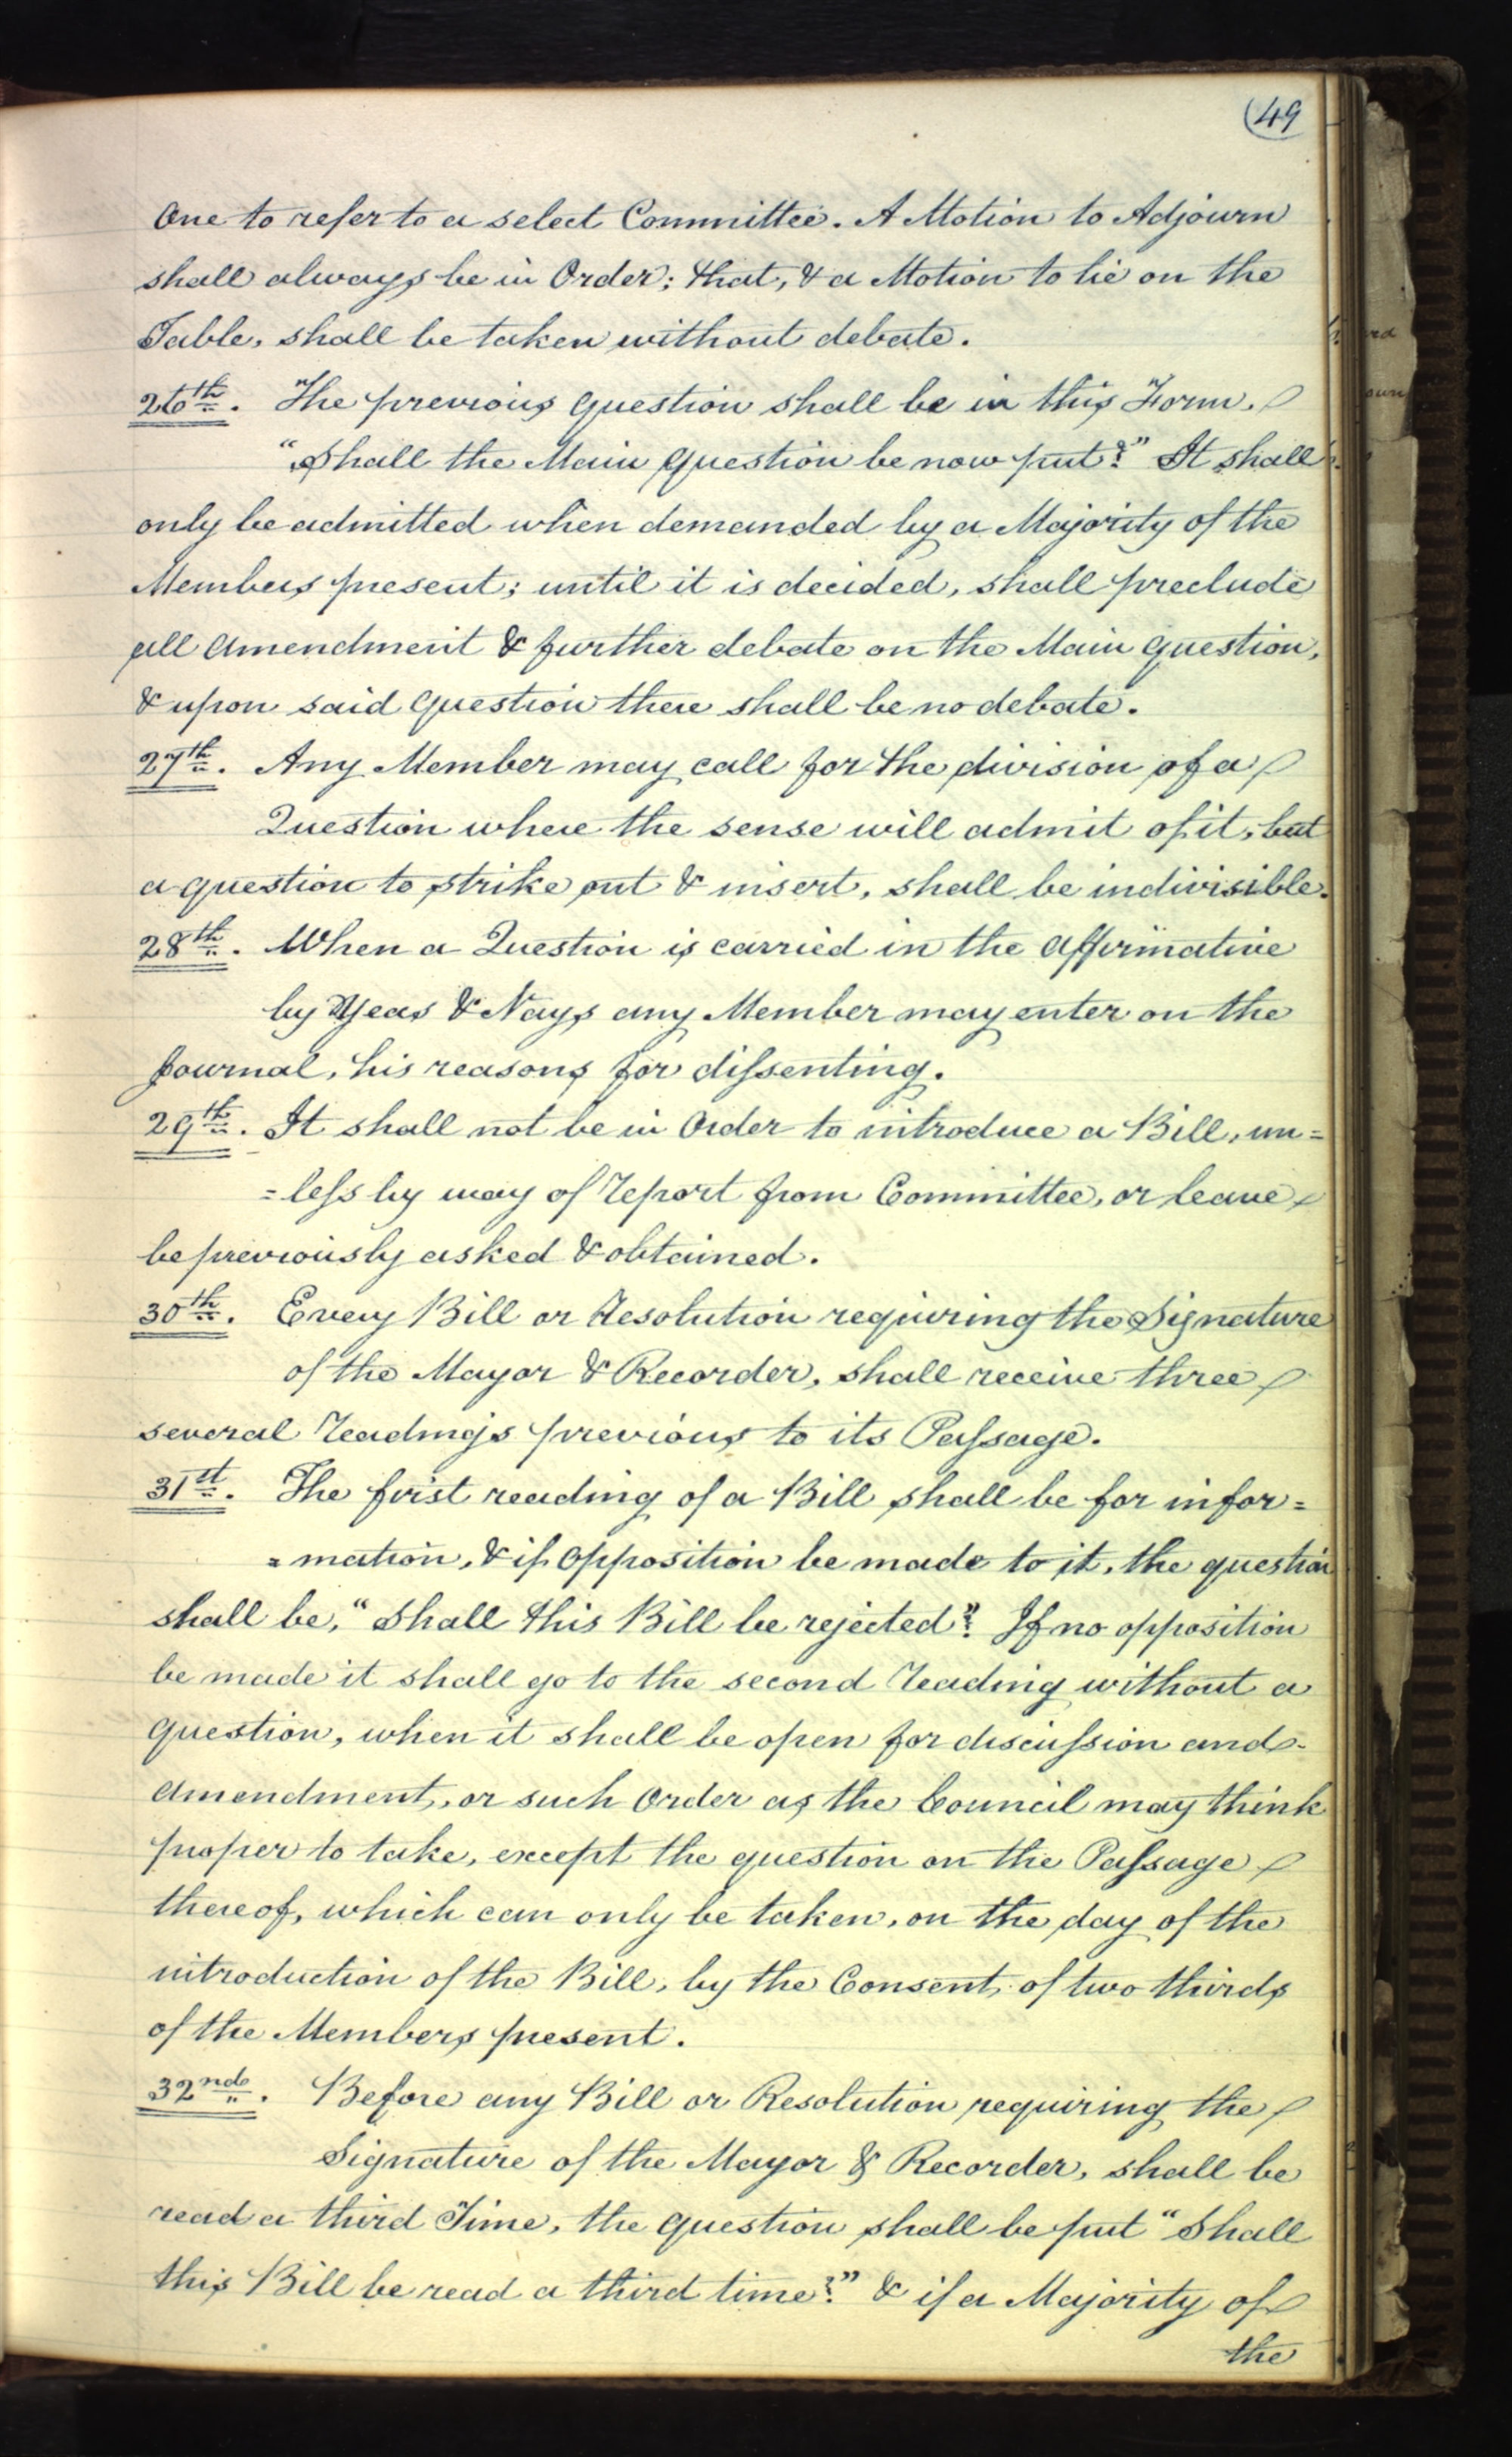 (49
One to refer to a select Committee. A Motion to Adjourn
shall always be in Order; that, & a Motion to lie on the
Table, shall be taken without debate.
26th. The previous question shall be in this Form.
"Shall the Main question be now put?" It shall
only be admitted when demanded by a Majority of the
Members present; until it is decided, shall preclude
all Amendment & further debate on the Main question,
& upon said question there shall be no debate.
27th. Any Member may call for the division of a
Question where the sense will admit of it, but
a question to strike out & insert, shall be indivisible.
28th. When a Question is carried in the affirmative
by Yeas & Nays any Member may enter on the
Journal, his reasons for dissenting.
29th. It shall not be in Order to introduce a Bill, un=
=less by way of report from Committee, or leave
be previously asked & obtained.
30th. Every Bill or Resolution requiring the Signature
of the Mayor & Recorder, shall receive three
several readings previous to its Passage.
31st. The first reading of a Bill shall be for infor=
=mation, & if opposition be made to it, the question
shall be, "Shall this Bill be rejected"? If no opposition
be made it shall go to the second reading without a
question, when it shall be open for discussion and
amendment, or such Order as the Council may think
proper to take, except the question on the Passage
thereof, which can only be taken, on the day of the
introduction of the Bill, by the Consent, of two thirds
of the Members present.
32nd. Before any Bill or Resolution requiring the
Signature of the Mayor & Recorder, shall be
read a third Time, the question shall be put "Shall
this Bill be read a third time?" & if a Majority of
the